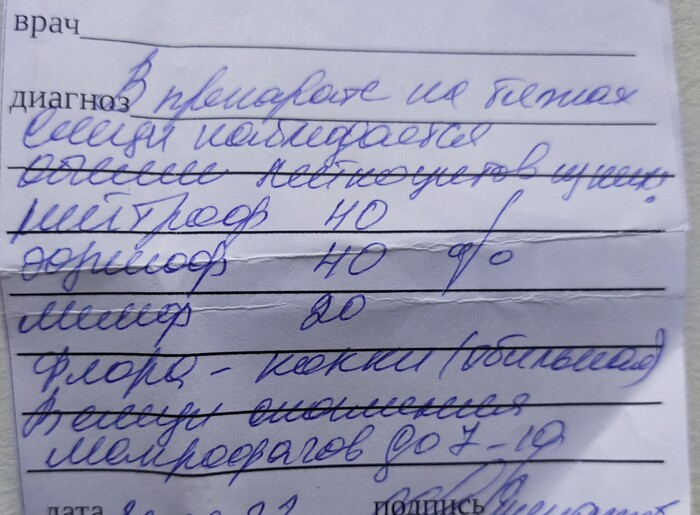 врач
диагноз В препарате на тяжах
слизи наблюдается
обилие лейкоцитов из них:
нейтроф 40
эозиноф 40 %
лимф 20
Флора - кокки (обильная)
В слизи скопления
Макрофагов до 7-10
дата подпись